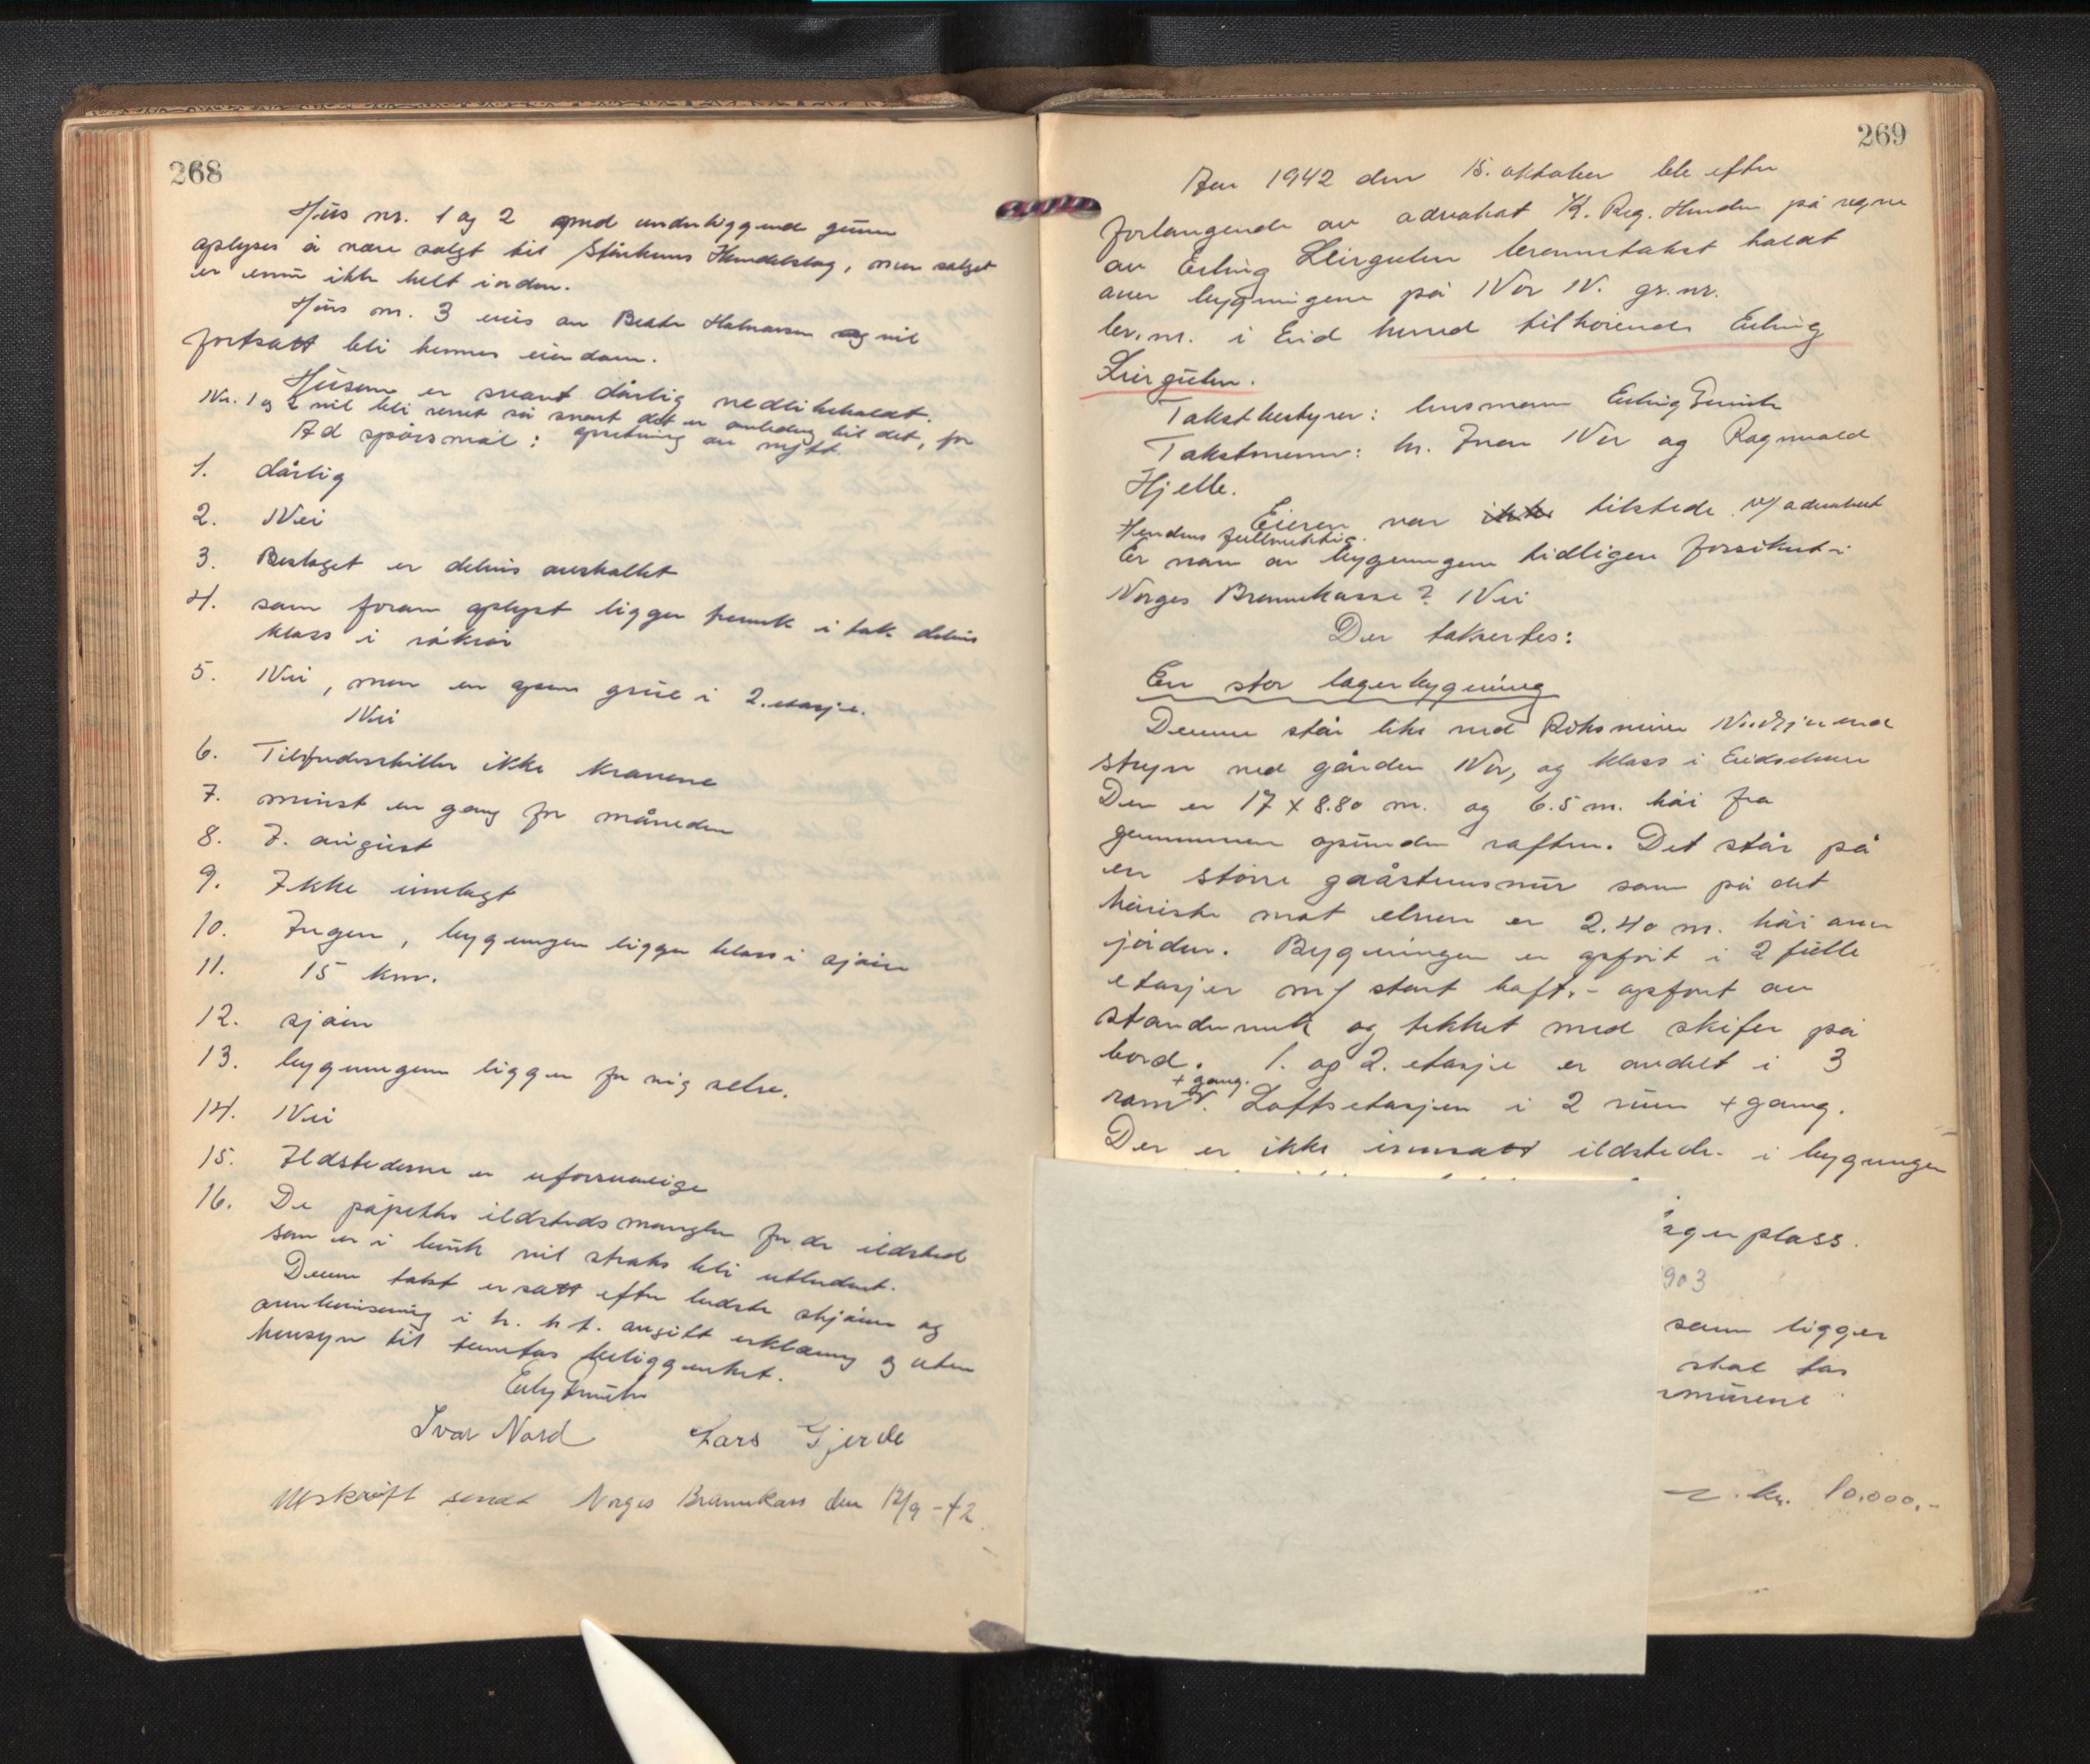 268
Hus nr. 1 og 2 med underliggende grunn
oplyses å være solgt til Stårheims Handelslag, men salget
er ennu ikke helt iorden.
Hus nr. 3 eies av Beate Halvorsen og vil
fortsatt bli hennes eiendom.
Husene er svært dårlig vedlikeholdt.
Nr. 1 og 2 vil bli revet så snart det er anledning til det, for
Ad spørsmål: opsetning av nytt.
1. dårlig
2. Nei
3. Beslaget er delvis avskallet
4. som foran oplyst ligger
klass i
5. Nei, men en åpen grue i 2. etasje.
Nei
6. ikke
7. minst en gang pr måneden
8. 7. august
9. Ikke innlagt
10. Ingen, bygningen ligger klass i sjøen
11. 15 km.
12. sjøen
13. bygningene ligger for sig selve.
14. Nei
15. Ildstederne er uforsvarlige
16. De påpekte ildstedsmangler for de ildsted
som er i bruk vil straks bli utbedret.
Denne takst er satt efter bedste skjønn og
overbevisning i h. h. t. avgitt erklæring og uten
hensyn til tomtens beliggenhet.
Ivar Nord Lars Gjerde
Utskrift sendt Norges Brannkasse den 12/9-42.
269
Aar 1942 den 15. oktober ble efter
forlangende av advokat K. Reg. Hendon på vegne
av Erling Leirgulen branntakst holdt
over bygningene på Nor N. gr.nr.
br.nr. i Eid herred tilhørende Erling
Leirgulen.
Takstbestyrer: lensmann
Takstmenn: hr. Ivar Nor og Ragnvald
Hjelle.
Eieren var ikke tilstede v/ advokat
Hendens fullmektig.
Er noen av bygningene tidligere forsikret i
Norges Brannkasse? Nei
Der takseres:
En stor lagerbygning
Denne står like ved Riksveien
Stryn ved gården Nor, og klass i
Den er 17 x 8.80 m. og 6.5 m. høi fra
grunnmuren opunder raften. Det står på
en større gråstensmur som på det
høieste mot elven er 2.40 m. høi over
jorden. Bygningen er opført i 2 fulle
etasjer m/ stort loft.- opført av
standerverk og tekket med skifer på
bord. 1. og 2. etasje er avdelt i 3
+ gang.
rom. Loftsetasjen i 2 rum + gang.
Der er ikke innsatt ildsteder i bygningen
agerplass.
903
som ligger
skal tas
murene
kr. 10.000,-